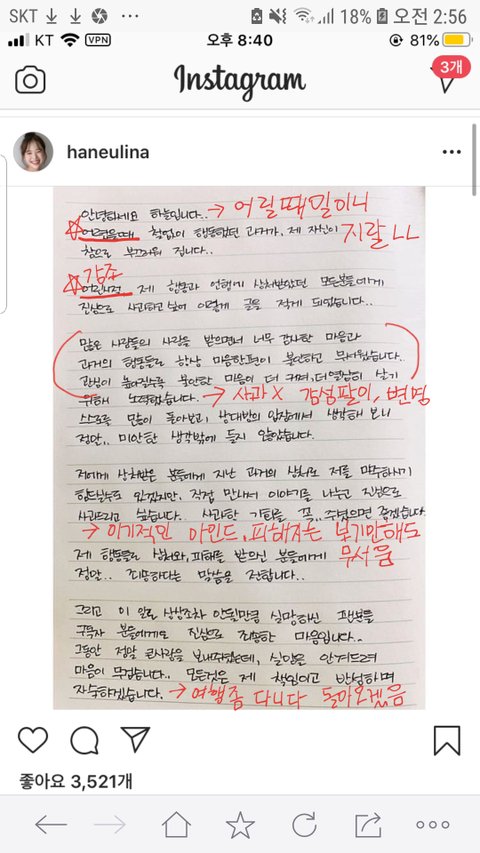 SKT 18% 오전 2:56
KT VPN 오후 8:40 81%
Instagram
3개
haneulina
안녕하세요 하늘입니다.. → 어릴때일이니
어렸을때, 철없이 행동했던 과거가, 제 자신이 지랄 ㄴㄴ
참으로 부끄러워 집니다..
강조
어린시절 제 행동과 언행에 상처받았던 모든분들에게
진심으로 사과하고 싶어 이렇게 글을 적게 되었습니다..
많은 사람들의 사랑을 받으면서 너무 감사한 마음과
과거의 행동들로 항상 마음한편이 불안하고 무서웠습니다..
관심이 높아질수록 불안한 마음이 더 커져, 더 열심히 살기
위해 노력했습니다. → 사과 X 감성팔이, 변명
스스로를 많이 돌아보고, 상대방의 입장에서 생각해 보니
정말.. 미안한 생각밖에 들지 않았습니다.
저에게 상처받은 분들에게 지난 과거의 상처로 저를 마주하시기
힘드실수도 있겠지만, 직접 만나서 이야기를 나누고 진심으로
사과드리고 싶습니다.. 사과할 기회를 꼭.. 주셨으면 좋겠습니다
→ 이기적인 마인드, 피해자는 보기만해도
제 행동들로 상처와, 피해를 받으신 분들에게 무서움
정말.. 죄송하다는 말씀을 전합니다..
그리고 이 일로 상상조차 안될만큼 실망하신 팬분들
구독자 분들에게도 진심으로 죄송한 마음입니다..
그동안 정말 큰사랑을 보내주셨는데, 실망을 안겨드려
마음이 무겁습니다.. 모든것은 제 책임이고 반성하며
자숙하겠습니다. → 여행좀 다니다 돌아오겠음
좋아요 3,521개